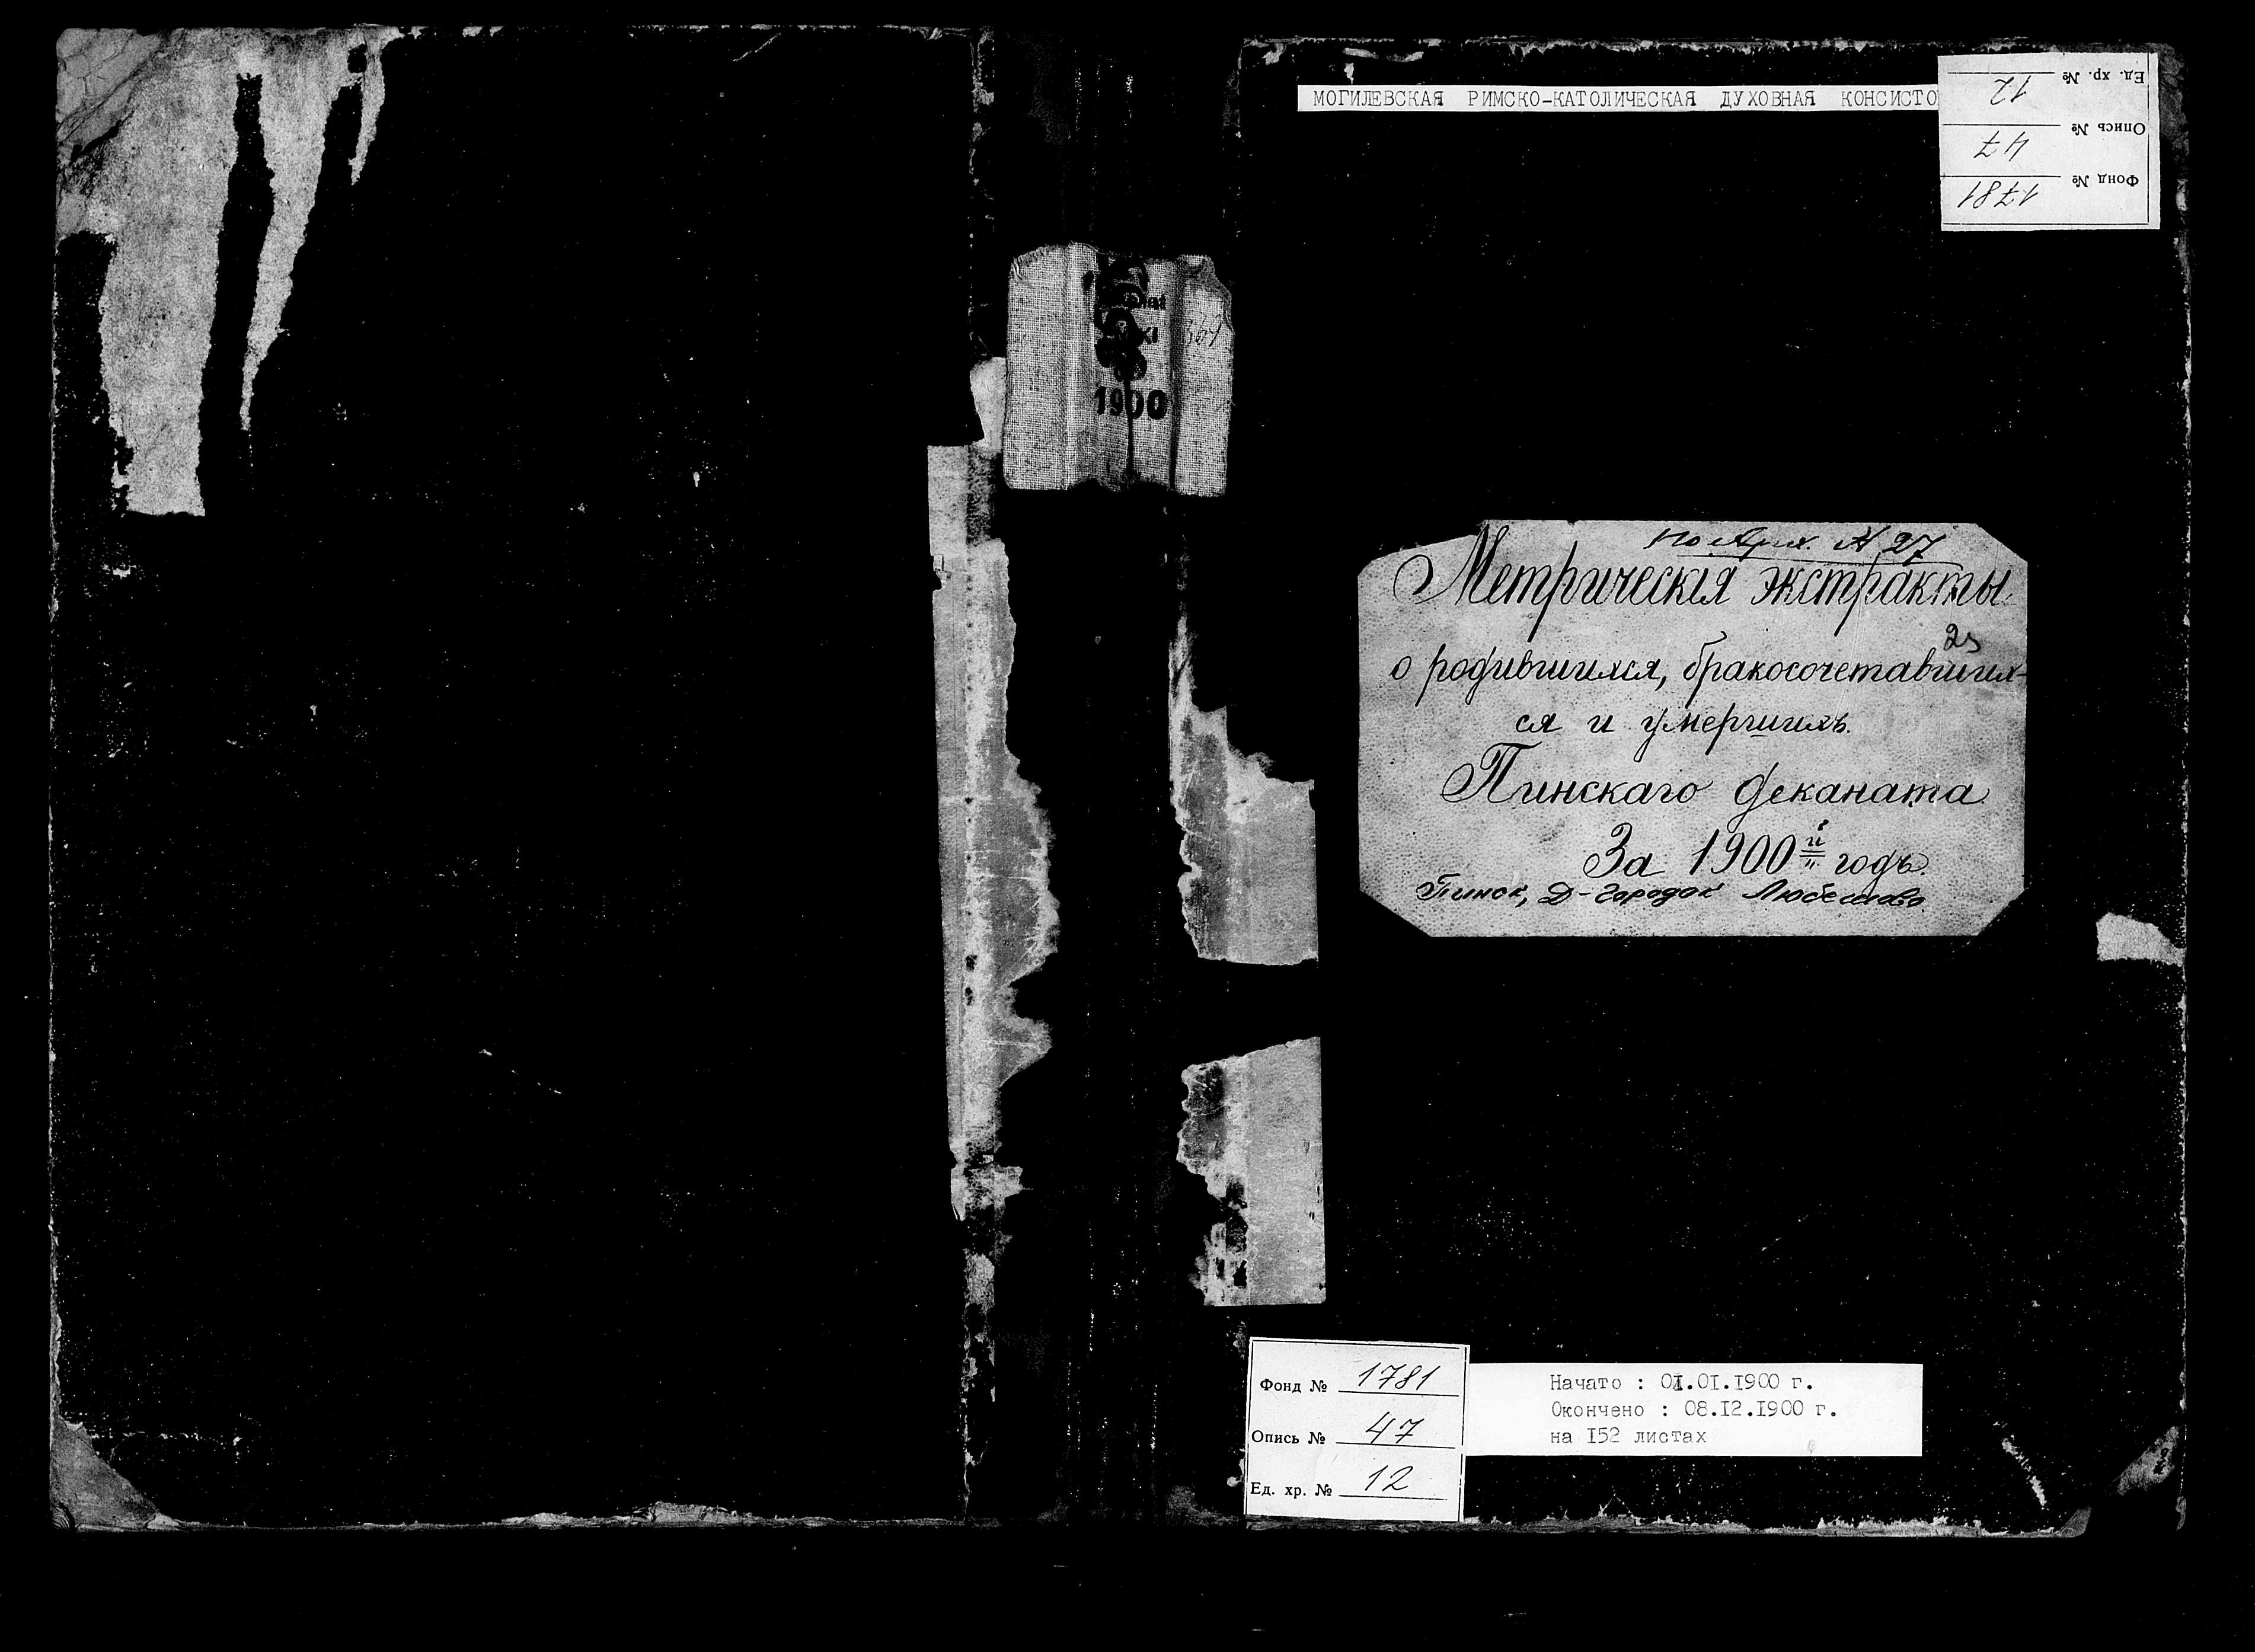 МОГИЛЕВСКАЯ РИМСКО-КАТОЛИЧЕСКАЯ ДУХОВНАЯ КОНСИСТО
Ед. хр. № 12
Опись № 47
Фонд № 1781
1900
по Арх. № 27
Метрическія экстракты
25
о родившихся, бракосочетавших-
ся и умершихъ.
Пинскаго деканата
За 1900й годъ.
Пинск, Д-Городок Любешово
Фонд № 1781
Опись № 47
Ед. хр. № 12
Начато : 01.01.1900 г.
Окончено : 08.12.1900 г.
на 152 листах